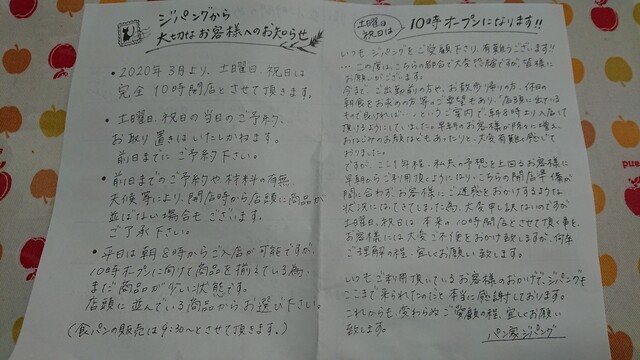 ジパングから
大切なお客様へのお知らせ
• 2020年3月より、土曜日、祝日は
完全10時開店とさせて頂きます。
• 土曜日、祝日の当日のご予約、
お取り置きはいたしかねます。
前日までにご予約下さい。
• 前日までのご予約や、材料の有無、
天候等により、開店時から店頭に商品が
並ばない場合もございます。
ご了承下さい。
• 平日は朝8時からご入店が可能ですが、
10時オープンに向けて商品を揃えている為、
まだ商品が少ない状態です。
店頭に並んでいる商品からお選び下さい。
(食パンの販売は9:30〜とさせて頂きます。)
土曜日
祝日は
10時オープンになります!!
いつもジパングをご愛顧下さり、有難うございます!!
…この度は、こちらの都合で大変恐縮ですが、皆様に
お願いがございます。
今まで、ご出勤前の方や、お散歩帰りの方、休日の
朝食をお求めの方等のご要望もあり、「店頭に出ている
もので良ければ…」というご案内で、朝8時より入店して
頂けるようにしていました。早朝のお客様が除々に増え、
おなじみのお顔などもあったりと、大変有難く感じて
おりました。
ですが、ここ1年程、私共の予想を上回るお客様に
早朝からご利用頂くようになり、こちらの開店準備が
間に合わず、お客様にご迷惑をおかけするような
状況になってきてしまった為、大変申し訳ないのですが
土曜日、祝日は本来の10時開店とさせて頂く事を、
お客様には大変ご不便をおかけ致しますが、何卒
ご理解の程、宜しくお願い致します。
いつもご利用頂いているお客様のおかげで、ジパングも
ここまで来られたのだと本当に感謝しております。
これからも、変わらぬご愛顧の程、宜しくお願い
致します。
パン家ジパング